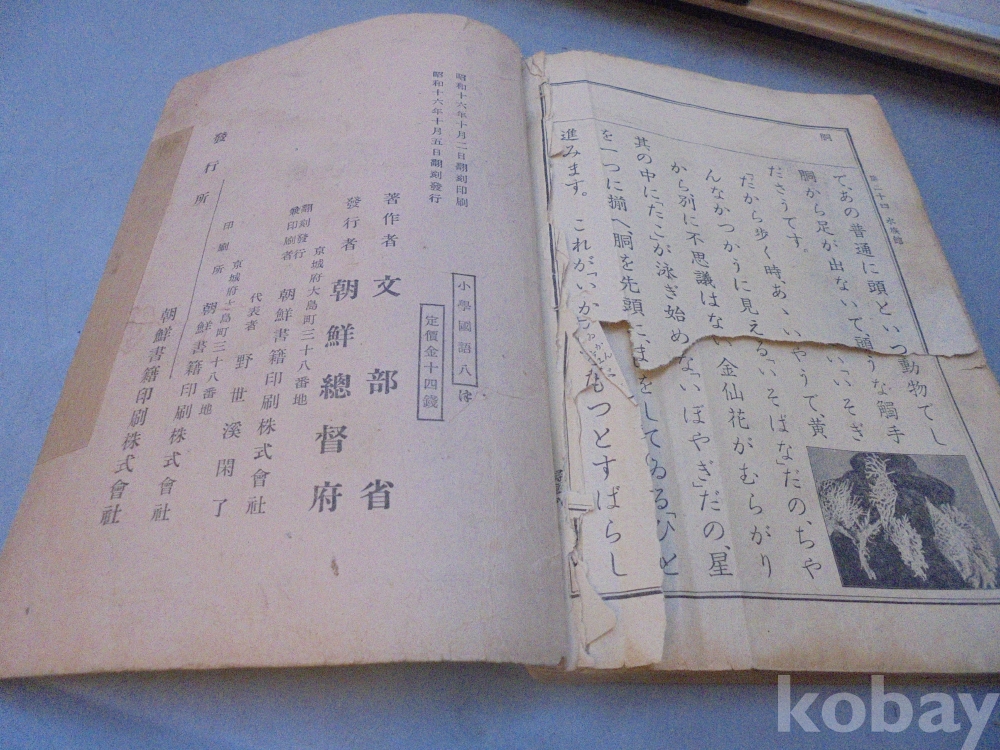 胴
第二十四 水族館
て、あの普通に頭といつ
動物でし
胴から足が出ないで頭
うな觸手
ださうです。
「いそぎ
だから歩く時、あ
、いやうで、黄
んなかつかうに見える
いそばな」だの、ちや
から別に不思議はない
金仙花がむらがり
其の中に「たこ」が泳ぎ始め
ない「ほやぎ」だの、星
を一つに揃へ、胴を先頭に、ま
をしてゐる「ひと
進みます。これが「いか
もつとすばらし
昭和十六年十月二日翻刻印刷
昭和十六年十月五日翻刻發行
小學國語八
定價金十四錢
著作者 文部省
發行者 朝鮮總督府
京城府大島町三十八番地
翻刻發行兼印刷者 朝鮮書籍印刷株式會社
代表者 野世溪閑了
京城府大島町三十八番地
印刷所 朝鮮書籍印刷株式會社
發行所 朝鮮書籍印刷株式會社
kobay